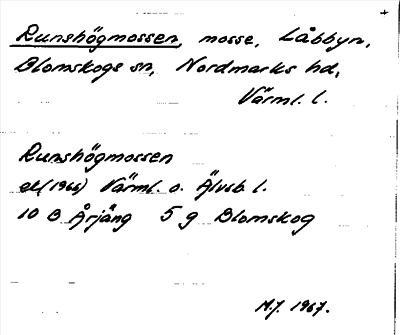 Runshögmossen, mosse, Låbbyn,
Blomskogs sn, Nordmarks hd,
Värml. l.
Runshögmossen
ek(1966) Värml. o. Älvsb. l.
10 B Årjäng 5 g Blomskog
M.J. 1967.